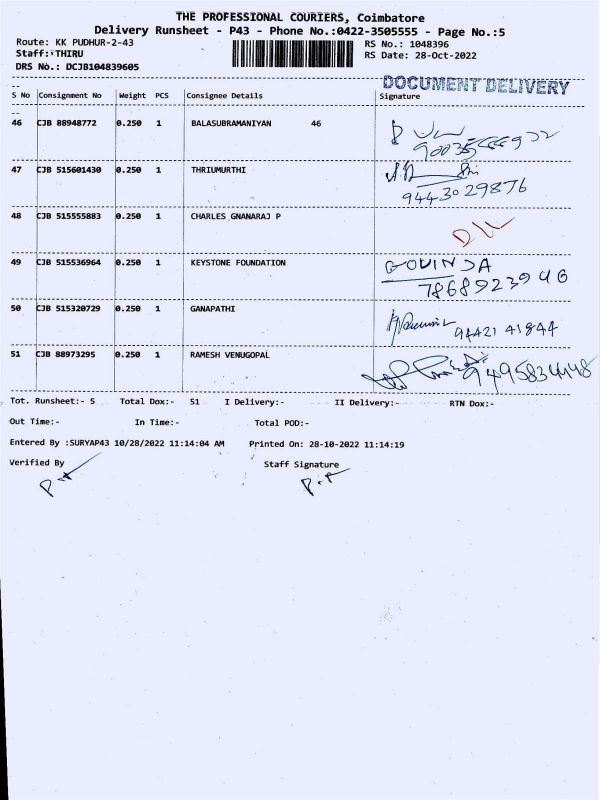 THE PROFESSIONAL COURIERS, Coimbatore
Delivery Runsheet - P43 - Phone No.:0422-3505555 - Page No.:5
Route: KK PUDHUR-2-43 RS No.: 1048396
Staff: THIRU RS Date: 28-Oct-2022
DRS No.: DCJB104839605
DOCUMENT DELIVERY
S No Consignment No Weight PCS Consignee Details Signature
46 CJB 88948772 0.250 1 BALASUBRAMANIYAN 46
47 CJB 515601430 0.250 1 THRIUMURTHI
9443029876
48 CJB 515555883 0.250 1 CHARLES GNANARAJ P
49 CJB 515536964 0.250 1 KEYSTONE FOUNDATION GOVINDA
7868923946
50 CJB 515320729 0.250 1 GANAPATHI 94421 41844
51 CJB 88973295 0.250 1 RAMESH VENUGOPAL
Tot. Runsheet:- 5 Total Dox:- 51 I Delivery:- II Delivery:- RTN Dox:-
Out Time:- In Time:- Total POD:-
Entered By :SURYAP43 10/28/2022 11:14:04 AM Printed On: 28-10-2022 11:14:19
Verified By Staff Signature